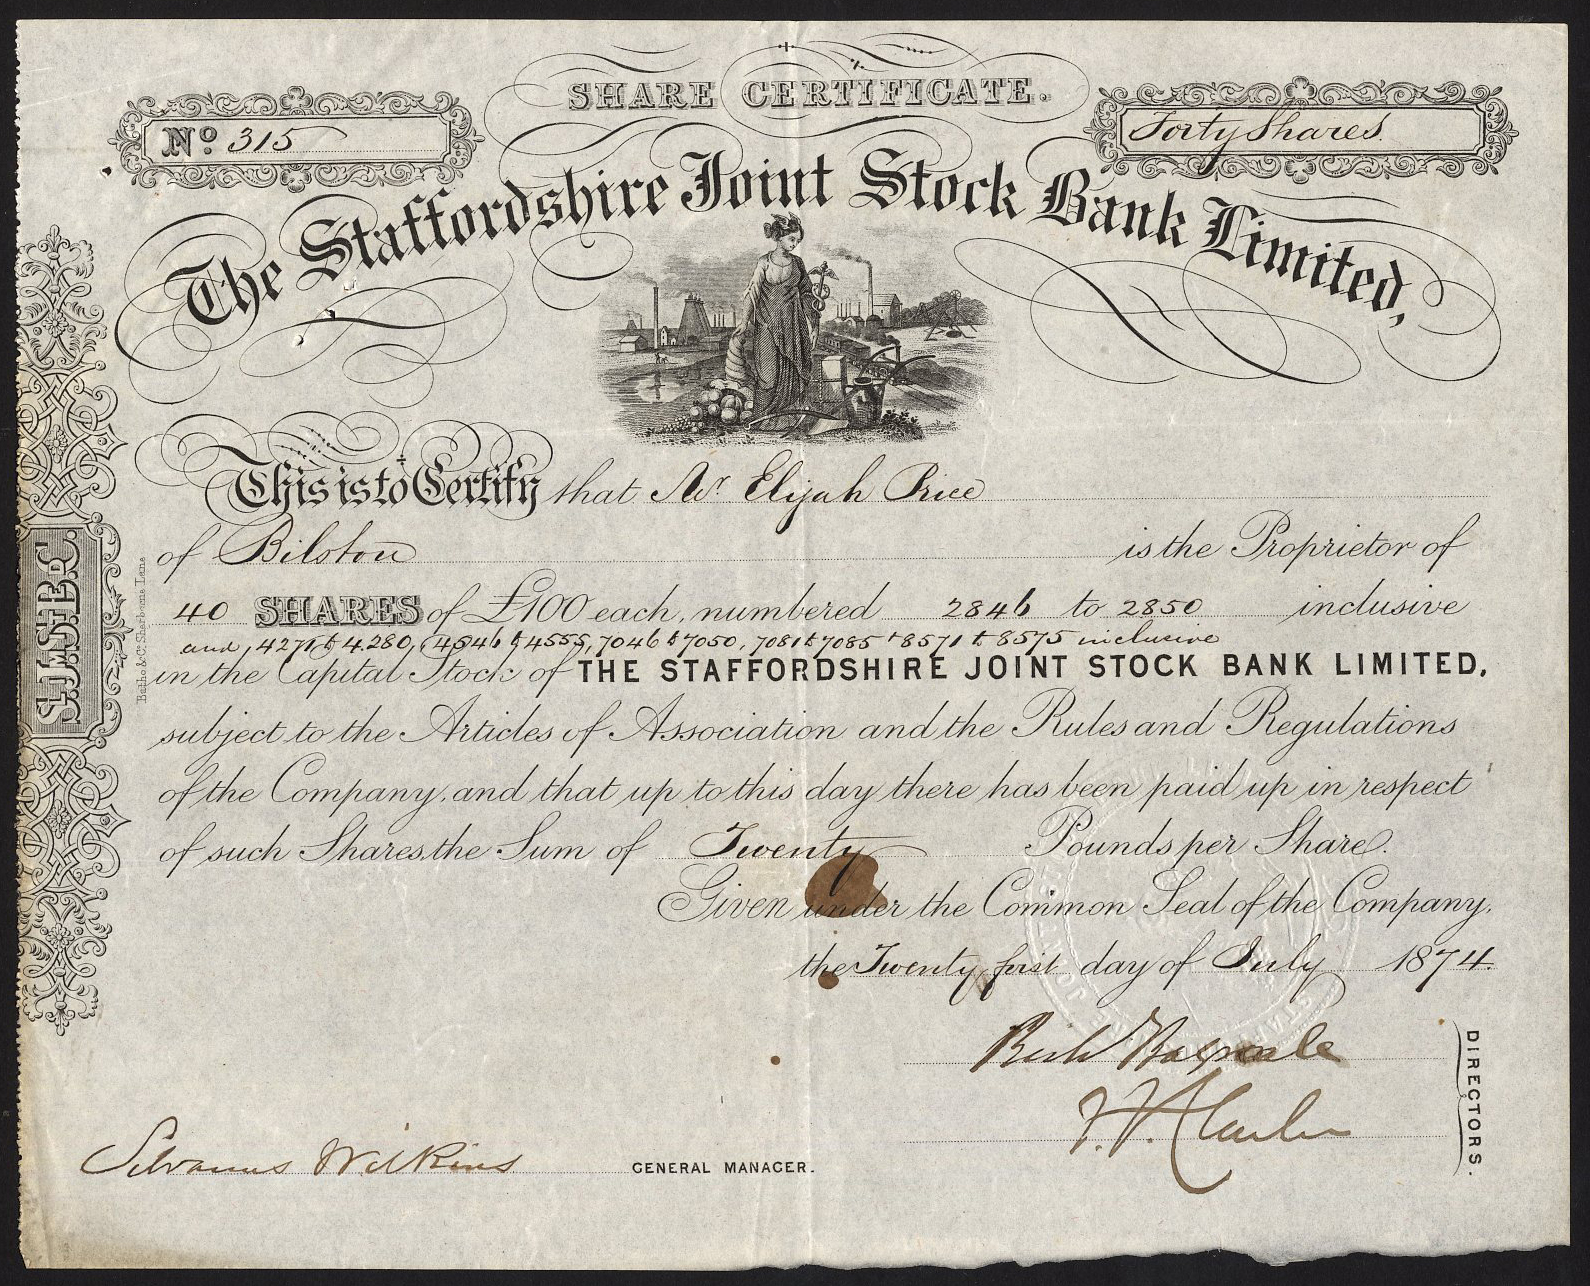 SHARE CERTIFICATE.
No. 315
Forty Shares
The Staffordshire Joint Stock Bank Limited,
This is to Certify that Mr Elijah Price
of Bilston is the Proprietor of
40 SHARES of £100 each, numbered 2846 to 2850 inclusive
and 4271 to 4280, 4546 to 4555, 7046 to 7050, 7081 to 7085 + 8571 to 8575 inclusive
in the Capital Stock of THE STAFFORDSHIRE JOINT STOCK BANK LIMITED,
subject to the Articles of Association and the Rules and Regulations
of the Company, and that up to this day there has been paid up in respect
of such Shares, the Sum of Twenty Pounds per Share.
Given under the Common Seal of the Company,
the Twenty first day of July 1874.
DIRECTORS.
Silvanus Wilkins GENERAL MANAGER.
S.J.S.B.C.